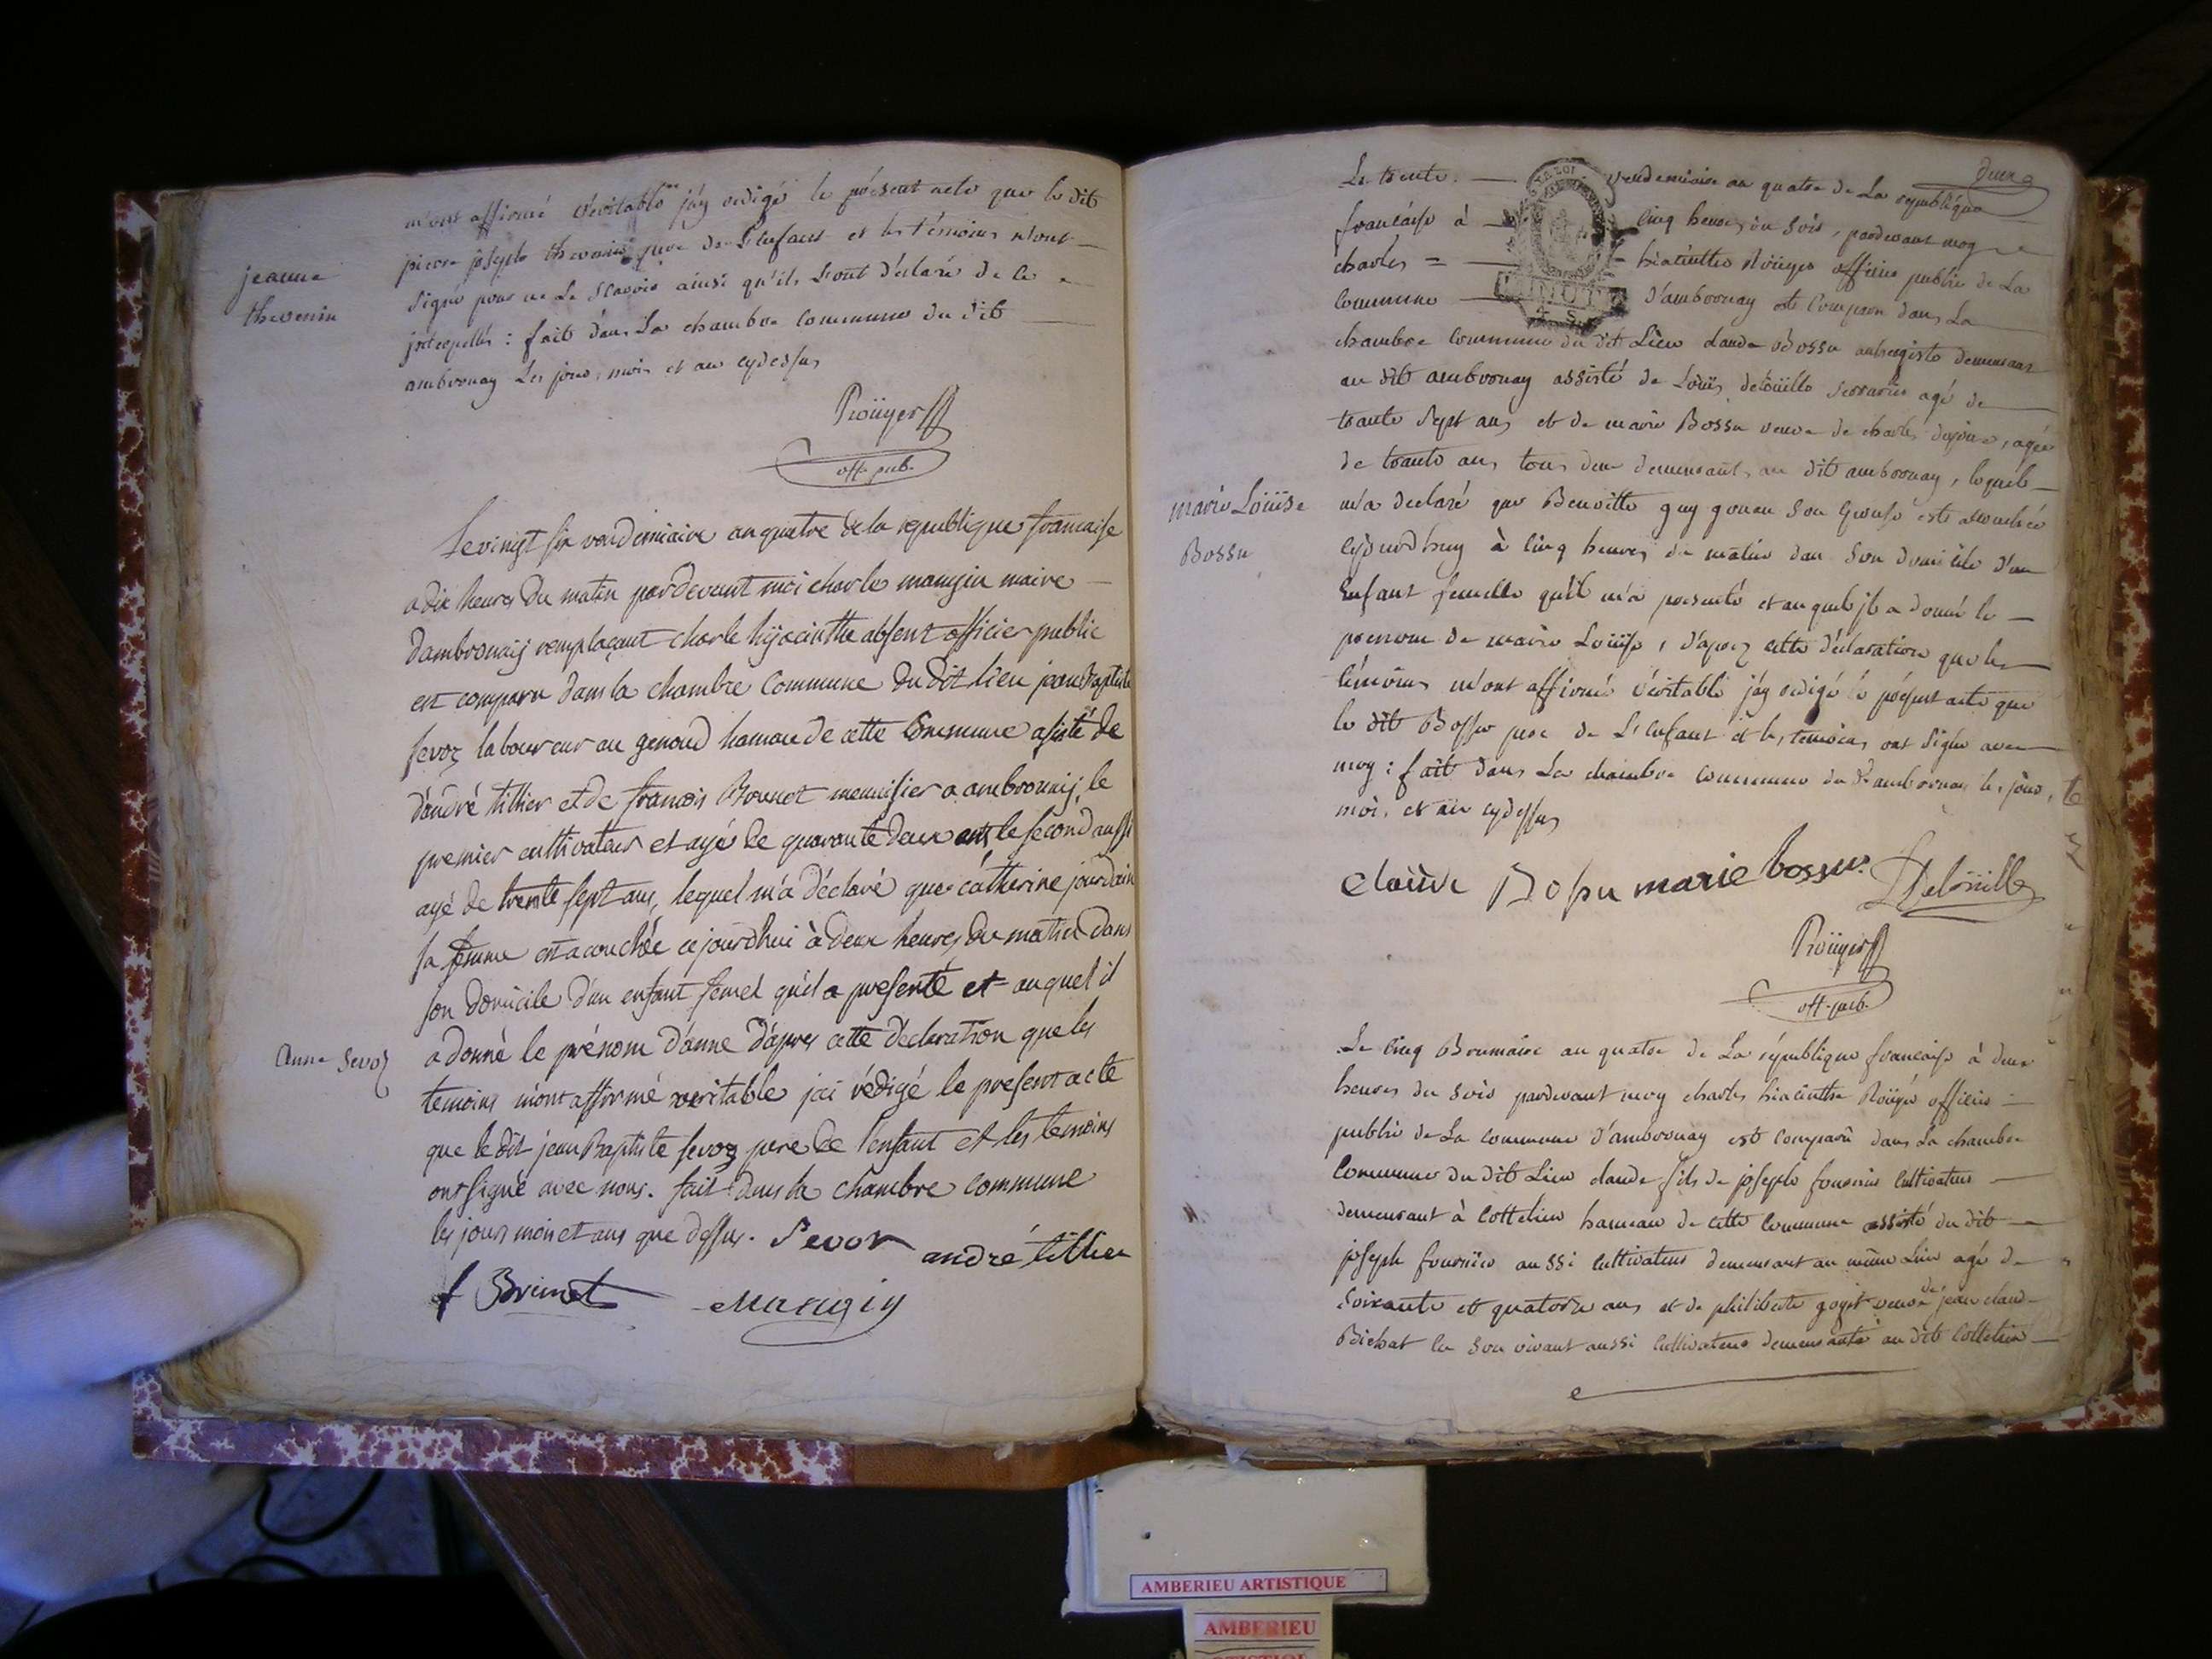 m'ont affirmé véritable j'ay redigé le présent acte que le dit
pierre joseph thevenin pere de L'enfant et les témoins n'ont
signé pour ne Le scavoir ainsi qu'ils L'ont déclaré de ce
jnterpellés : fait dans La chambre commune du dit
ambronay Les jour, mois et an cydessus
jeanne
thevenin
Roüyer
off. pub.
Le vingt six vendemiaire an quatre de la republique francaise
a dix heures du matin pardevant moi charle mangin maire
d'ambronaij remplaçant charle hijacinthe absent officier public
est comparu dans la chambre commune du dit lieu jean Baptiste
sevoz laboureur au genoud hamau de cette Commune asisté de
d'andré tillier et de francois Brunet menuisier a ambronaij, le
premier cultivateur et agé de quarante deux ans, le second aussi
agé de trente sept ans, lequel m'a déclaré que catherine jourdain
sa femme est acouchée ce jourd'hui à deux heures du matin dans
son domicile d'un enfant femel qu'il a presenté et auquel il
a donné le prénom d'anne d'apres cette déclaration que les
temoins m'ont affirmé veritable j'ai rédigé le present acte
que le dit jean Baptiste sevoz pere de l'enfant et les temoins
ont signé avec nous. fait dans la chambre commune
les jours mois et ans que dessus. Sevoz
andré tillier
f Brunet Mangin
Anne Sevoz
Le trente vendemiaire an quatre de La republique
francaise à cinq heures du soir, pardevant moy
charles = hiacinthe Roüyer officier public de La
commune d'ambronay est comparu dans La
chambre commune du dit Lieu claude Bossu aubergiste demeurant
au dit ambronay assisté de Loüis deloüille serrurier agé de
trante sept ans et de marie Bossu veuve de charles, agée
de trante ans, tous deux demeurants au dit ambronay, lequel
m'a declaré que Benoitte guy son Epouse est accouchée
cejourdhuy à cinq heures du matin dans son domicile d'un
Enfant femelle qu'il m'a presenté et auquel jl a donné le
prenom de marie Loüise, d'aprez cette déclaration que les
témoins m'ont affirmé véritable j'ay redigé le présent acte que
le dit Bossu pere de L'enfant et les temoins ont signé avec
moy : fait dans La chambre commune du dt ambronay les jour,
mois et an cydessus
marie Loüise
Bossu
claude Bossu marie bossu Deloüille
Roüyer
off. pub.
Le cinq Brumaire an quatre de La république francaise à deux
heures du soir pardevant moy charles hiacinthe Roüyer officier
public de La commune d'ambronay est comparû dans La chambre
commune du dit Lieu claude fils de joseph fournier cultivateur
demeurant à cottelieu hameau de cette commune assisté du dit
joseph fournier aussi cultivateur demeurant au même Lieu agé de
soixante et quatorze ans et de philiberte goyet veuve de jean claude
Bichat en son vivant aussi cultivateur demeurante au dit cottelieu
LA LOI
MINUTE
4 S.
AMBERIEU ARTISTIQUE
AMBERIEU